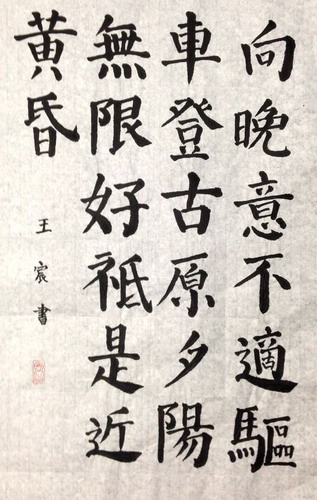 向晚意不適驅
車登古原夕陽
無限好祗是近
黄昏
王宸書